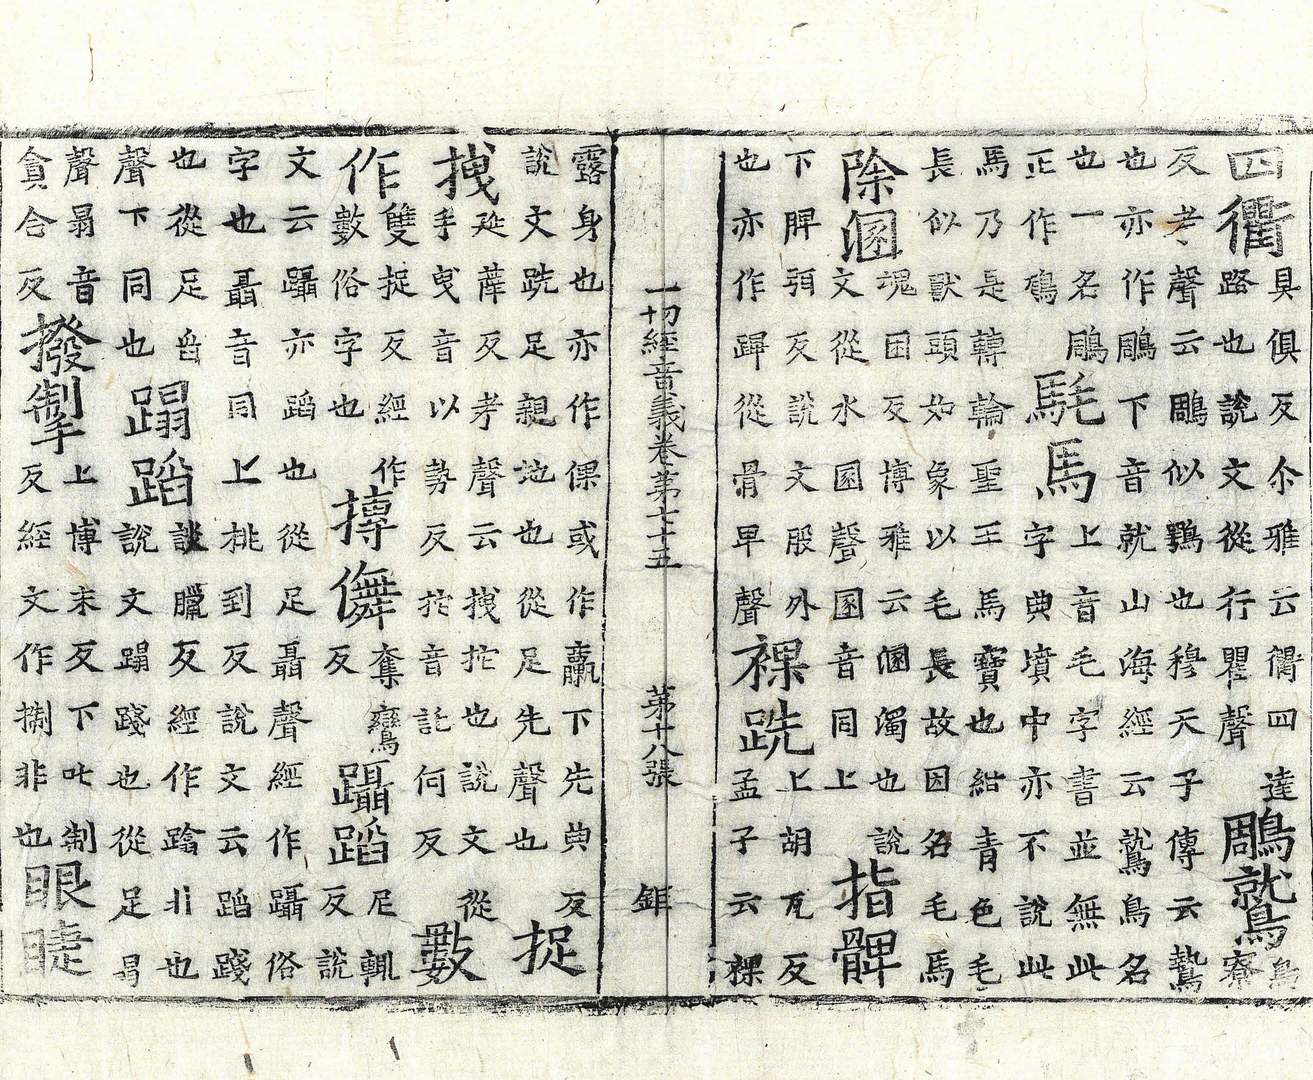 四衢具俱反尒雅云衢四達路也說文從行瞿聲鵰鷲鳥寮
反考聲云鵰似鶚也穆天子傳云鷙也亦作鵰下音就山海經云鷲鳥名
也一名鵰正作鴅髦馬上音毛字書並無此字典墳中亦不說此
馬乃是轉輪聖王馬寶也紺青色毛長似獸頭如象以毛長故因名毛馬
除溷魂困反博雅云溷濁也說文從水圂聲圂音同上指髀
下脾弭反說文股外也亦作踔從骨卑聲裸跣上胡瓦反孟子云裸
一切經音義卷第七十五 第十八張 鉅
露身也亦作倮或作臝下先典反說文跣足親地也從足先聲也捉
拽延薛反考聲云拽拕也說文從手曳音以勢反拕音託何反數
作雙捉反經作數俗字也摶儛奪鸞反躡蹈尼輒反說
文云躡亦蹈也從足聶聲經作躡俗字也聶音同上桃到反說文云蹈踐
也從足舀聲下同也蹋蹈談臘反經作蹹非也說文蹋踐也從足㬱
聲㬱音貪合反撥掣上博末反下叱制反經文作捌非也眼睫